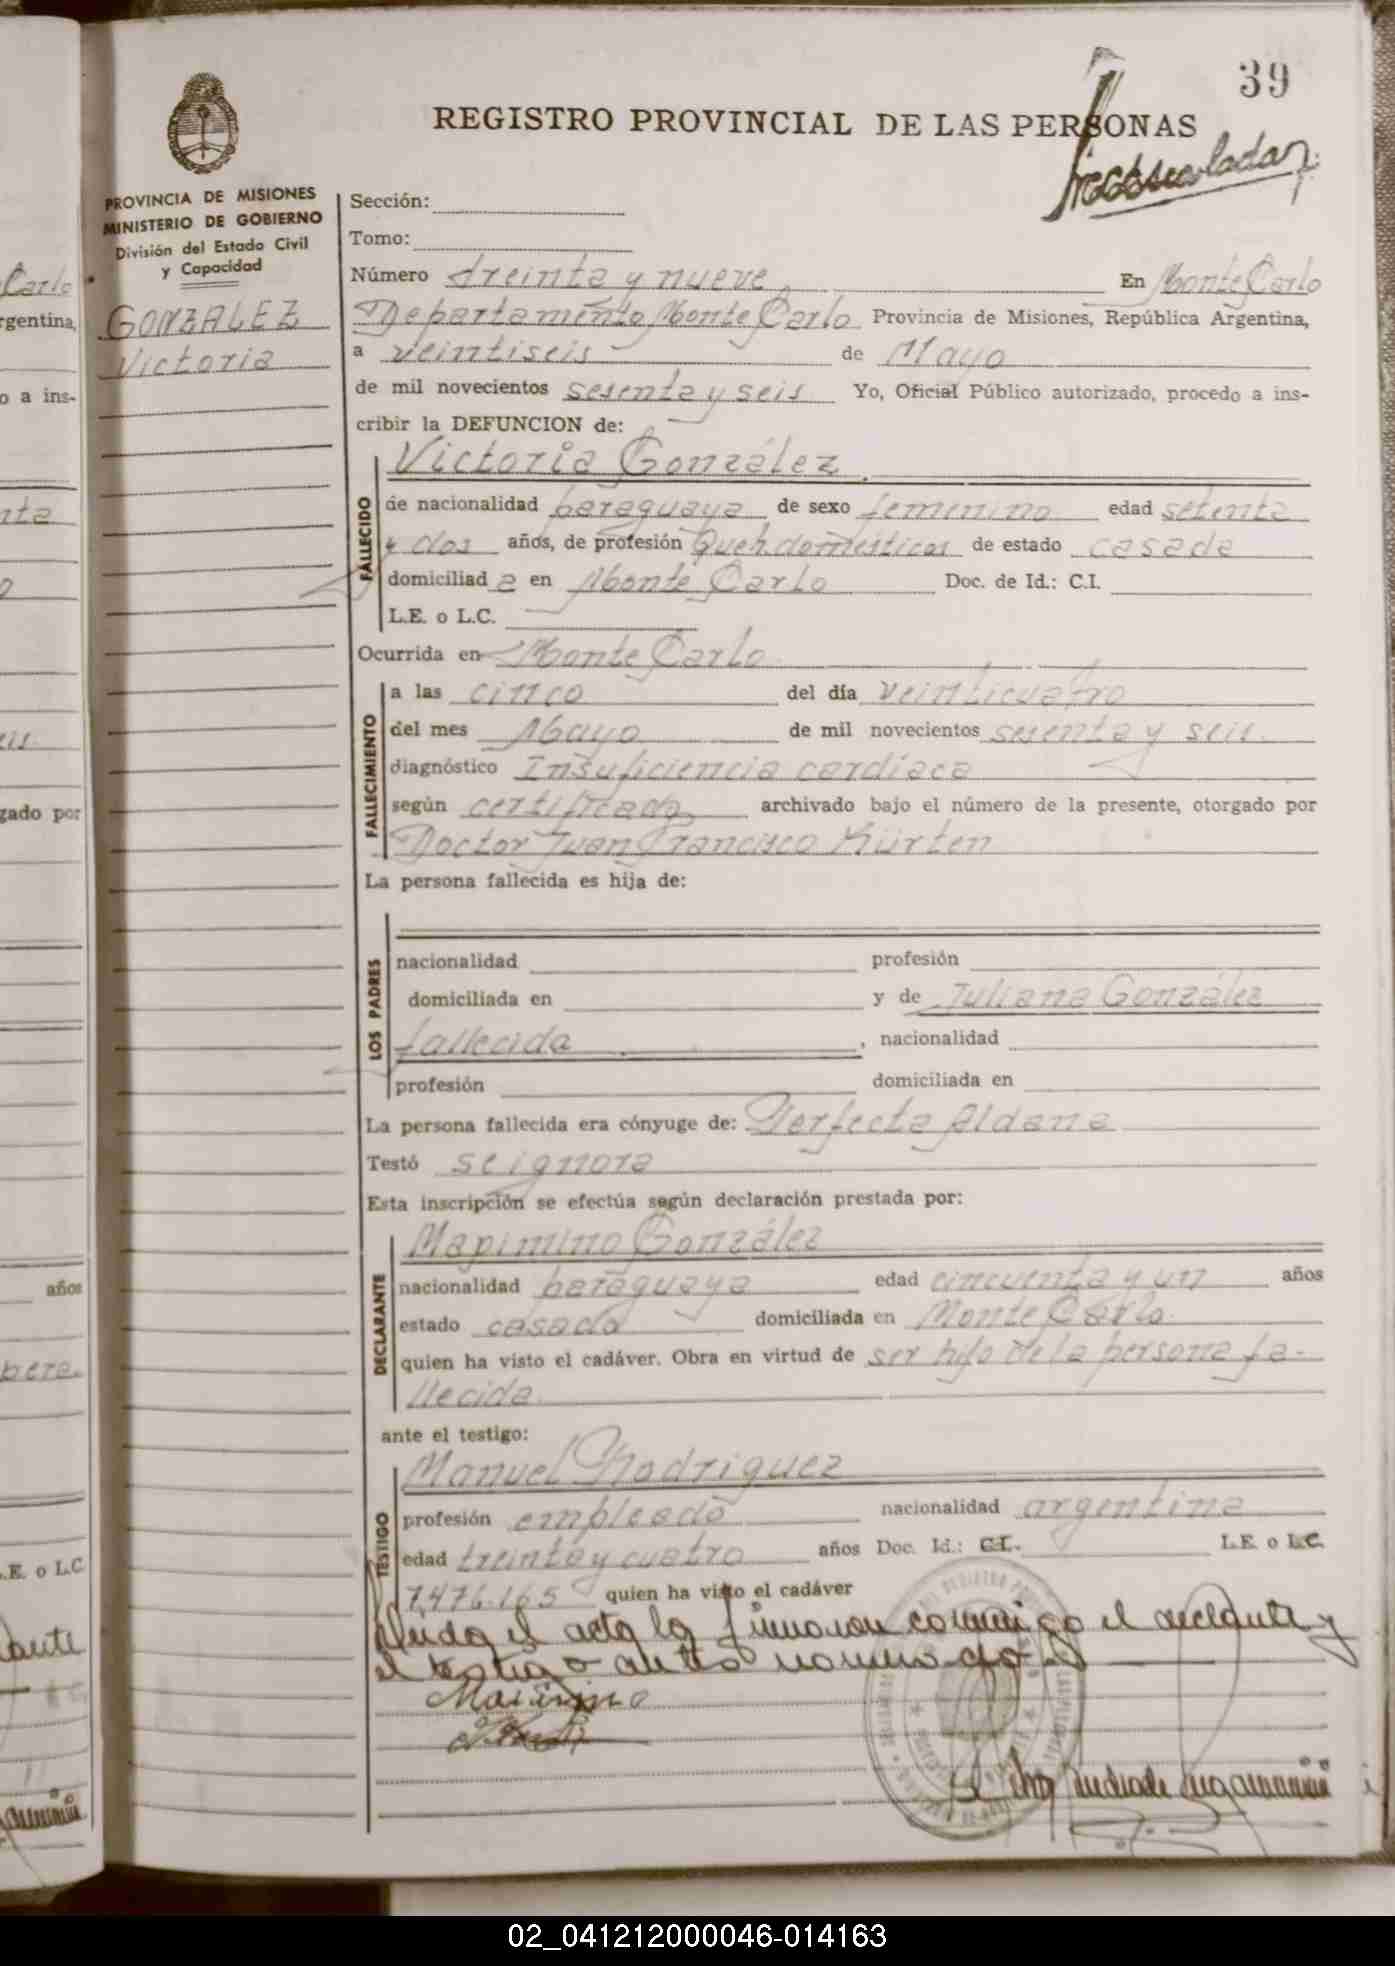 39
REGISTRO PROVINCIAL DE LAS PERSONAS
PROVINCIA DE MISIONES
MINISTERIO DE GOBIERNO
División del Estado Civil
y Capacidad
GONZALEZ
Victoria
Sección:
Tomo:
Número treinta y nueve En Monte Carlo
Departamento Monte Carlo Provincia de Misiones, República Argentina,
a veintiseis de Mayo
de mil novecientos sesenta y seis Yo, Oficial Público autorizado, procedo a ins-
cribir la DEFUNCION de:
FALLECIDO
Victoria González
de nacionalidad paraguaya de sexo femenino edad setenta
y dos años, de profesión Queh. domésticos de estado casada
domiciliad a en Monte Carlo Doc. de Id.: C.I.
L.E. o L.C.
Ocurrida en Monte Carlo
FALLECIMIENTO
a las cinco del día veinticuatro
del mes Mayo de mil novecientos sesenta y seis.
diagnóstico Insuficiencia cardíaca
según certificado archivado bajo el número de la presente, otorgado por
Doctor Juan Francisco Kürten
La persona fallecida es hija de:
LOS PADRES
nacionalidad profesión
domiciliada en y de Juliana González
fallecida, nacionalidad
profesión domiciliada en
La persona fallecida era cónyuge de: Perfecta Aldana
Testó se ignora
Esta inscripción se efectúa según declaración prestada por:
DECLARANTE
Maximino González
nacionalidad paraguaya edad cincuenta y un años
estado casado domiciliada en Monte Carlo.
quien ha visto el cadáver. Obra en virtud de ser hijo de la persona fa-
llecida.
ante el testigo:
TESTIGO
Manuel Rodriguez
profesión empleado nacionalidad argentina
edad treinta y cuatro años Doc. Id.: C.I. L.E. o L.C.
7.476.165 quien ha visto el cadáver
Leida el acta la firmaron conmigo el declante y
el testigo antes nominado
Maximino
Carlo
rgentina,
o a ins-
nta
zado por
años
L.E. o L.C.
02_041212000046-014163